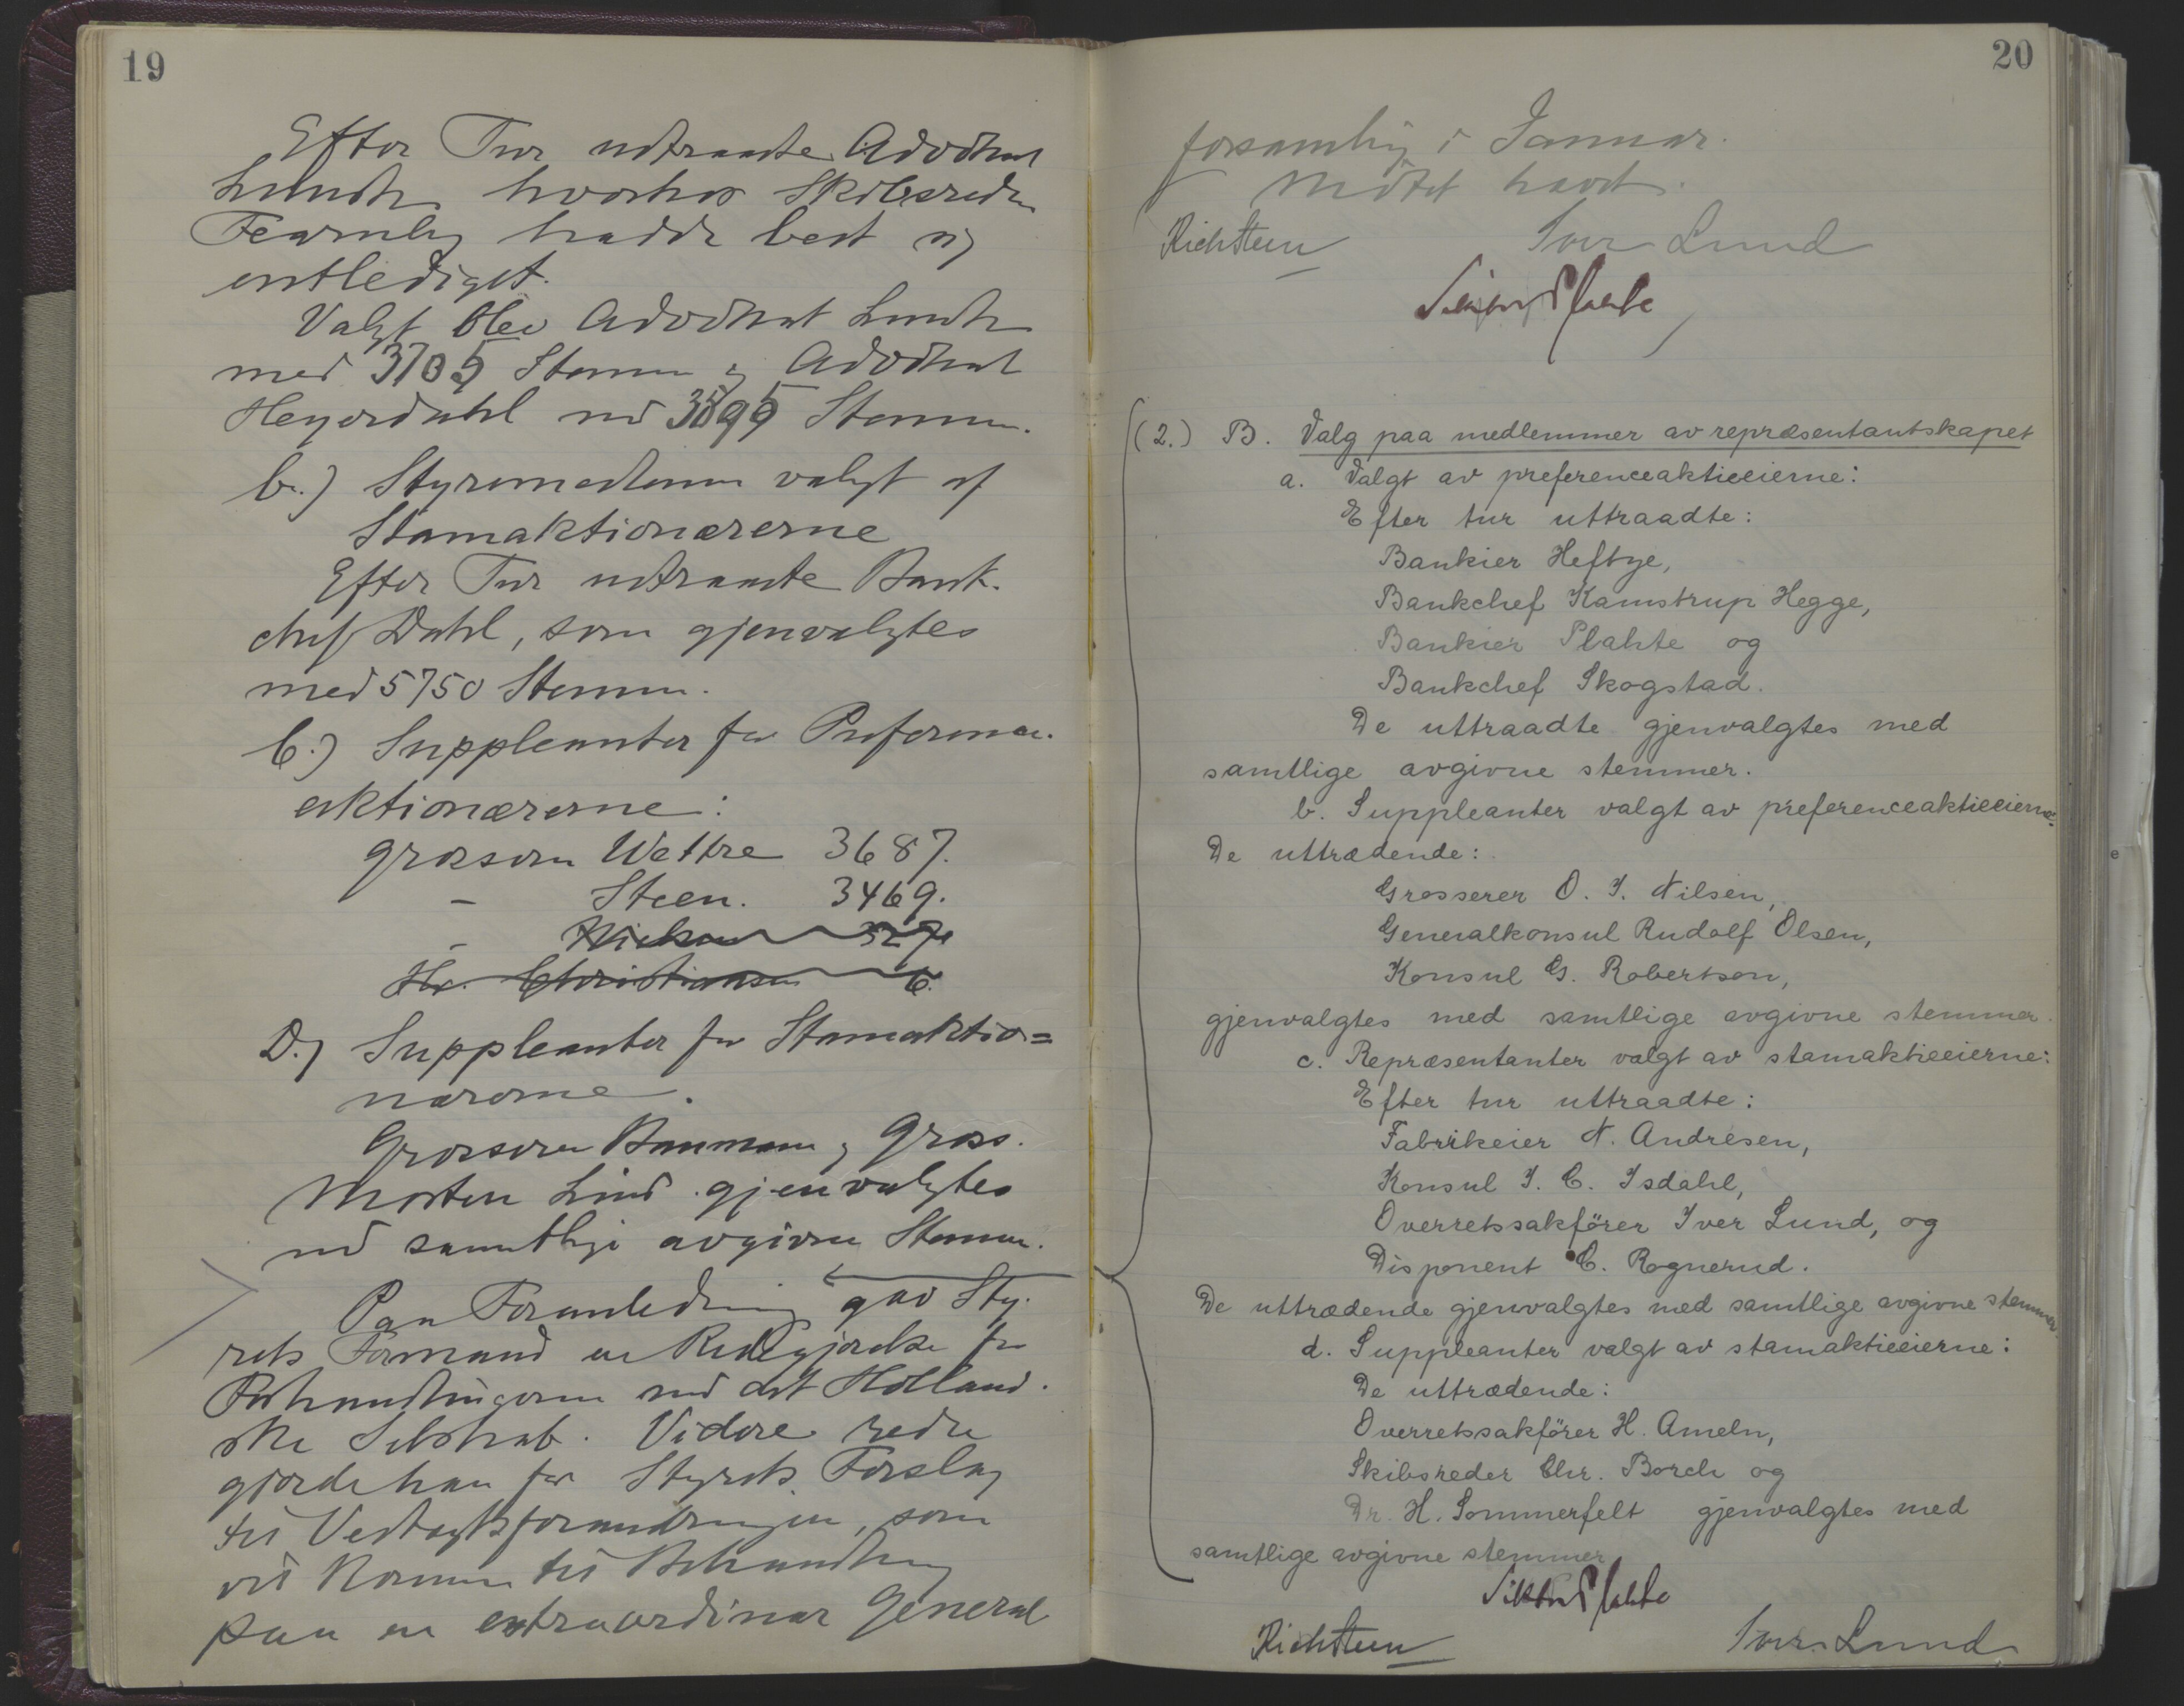 19
Efter Tur udtraadte Advokat
Lundh hvorhos Skibsreder
Fearnley hadde bedt sig
entlediget.
Valgt blev Advokat Lundh
med 3705 Stemmer og Advokat
Heyerdahl med Stemmer.
b.) Styremedlemmer valgt af
Stamaktionærerne
Efter Tur udtraadte Bank-
chef Dahl, som gjenvalgtes
med 5750 Stemmer.
C.) Suppleanter for Preference-
aktionærerne:
Grosserer Wettre 3687.
– Steen. 3469.
–
Hr. Christiansen 6.
D.) Suppleanter for Stamaktio=
nærerne.
Grosserer Baumann og Gross.
Morten Lind gjenvalgtes
med samtlige avgivne Stemmer.
Paa Foranledning gav Sty-
rets Formand en Redegjørelse for
Forhandlingerne med det Holland-
ske Selskab. Videre rede
gjorde han for Styrets Forslag
til Vedtægtsforandringer, som
vil komme til Behandling
paa en extraordinær General
20
forsamling i Januar.
Mötet hævet.
Rich Steen Iver Lund
Viktor Plahte
(2.) B. Valg paa medlemmer av repræsentantskapet
a. Valgt av preferenceaktieeierne:
Efter tur uttraadte:
Bankier Heftye,
Bankchef Kamstrup Hegge,
Bankier Plahte og
Bankchef Skogstad.
De uttraadte gjenvalgtes med
samtlige avgivne stemmer.
b. Suppleanter valgt av preferenceaktieeierne:
De uttrædende:
Grosserer O. J. Nilsen,
Generalkonsul Rudolf Olsen,
Konsul G. Robertson,
gjenvalgtes med samtlige avgivne stemmer.
c. Repræsentanter valgt av stamaktieeierne:
Efter tur uttraadte:
Fabrikeier N. Andresen,
Konsul J. C. Isdahl,
Overretssakförer Iver Lund, og
Disponent C. Rognerud.
De uttrædende gjenvalgtes med samtlige avgivne stemmer
d. Suppleanter valgt av stamaktieeierne:
De uttrædende:
Overretssakförer H. Ameln,
Skibsreder Chr. Borch og
Dr. H. Sommerfelt gjenvalgtes med
samtlige avgivne stemmer
Viktor Plahte
Rich Steen Iver Lund